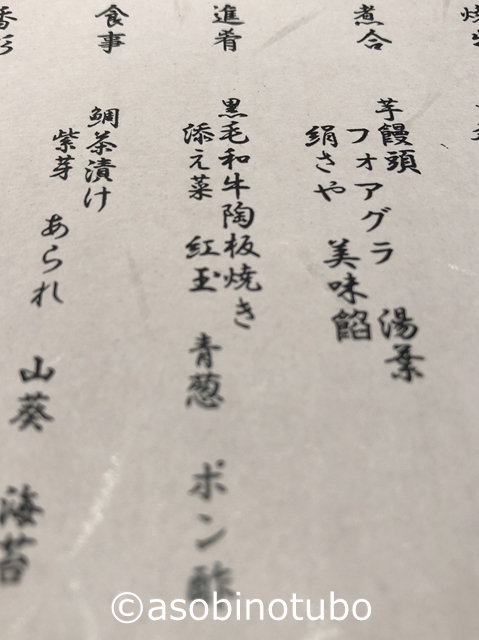 煮合
芋饅頭 湯葉
フォアグラ
絹さや 美味餡
進肴
黒毛和牛陶板焼き
添え菜 紅玉 青葱 ポン酢
食事
鯛茶漬け
紫芽 あられ 山葵 海苔
©asobinotubo